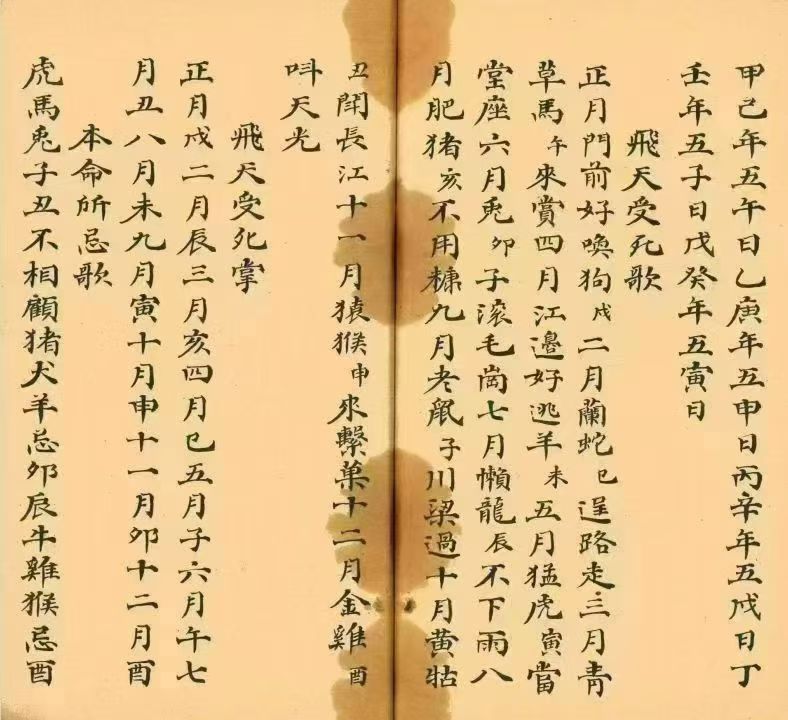 甲己年五午日乙庚年五申日丙辛年五戌日丁
壬年五子日戊癸年五寅日
飛天受死歌
正月門前好喚狗戌二月蘭蛇巳逞路走三月青
草馬午來賞四月江邊好逃羊未五月猛虎寅當
堂座六月兎卯子滚毛崗七月懶龍辰不下雨八
月肥猪亥不用糠九月老鼠子川梁過十月黄牯
丑開長江十一月猿猴申來繫菓十二月金雞酉
呌天光
飛天受死掌
正月戍二月辰三月亥四月巳五月子六月午七
月丑八月未九月寅十月申十一月卯十二月酉
本命所忌歌
虎馬兎子丑不相顧猪犬羊忌卯辰牛雞猴忌酉